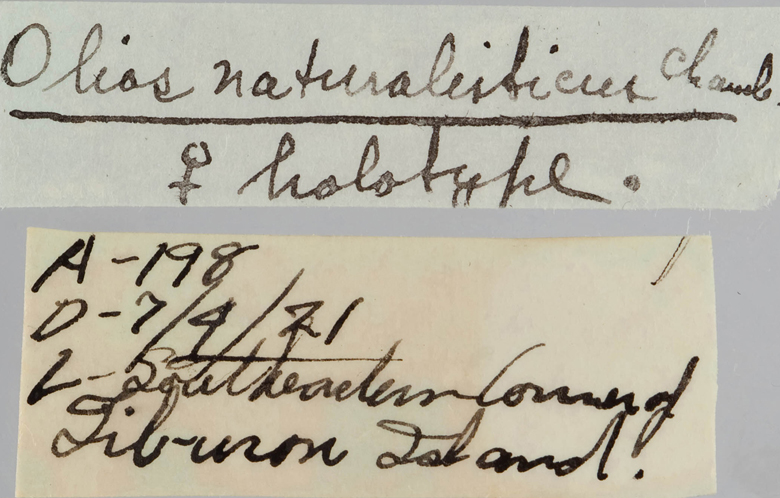 Olios naturalisticus Chamb.
♀ holotype.
A-198
D-7/4/21
L-Southeastern Corner of
Tiburon Island.